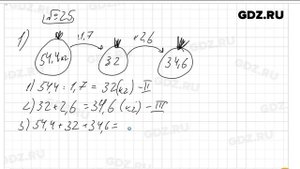 GDZ.RU
№25
1)
:1,7
+2,6
54,4 кг
32
34,6
1) 54,4 : 1,7 = 32 (кг) - II
2) 32 + 2,6 = 34,6 (кг) - III
3) 54,4 + 32 + 34,6 =